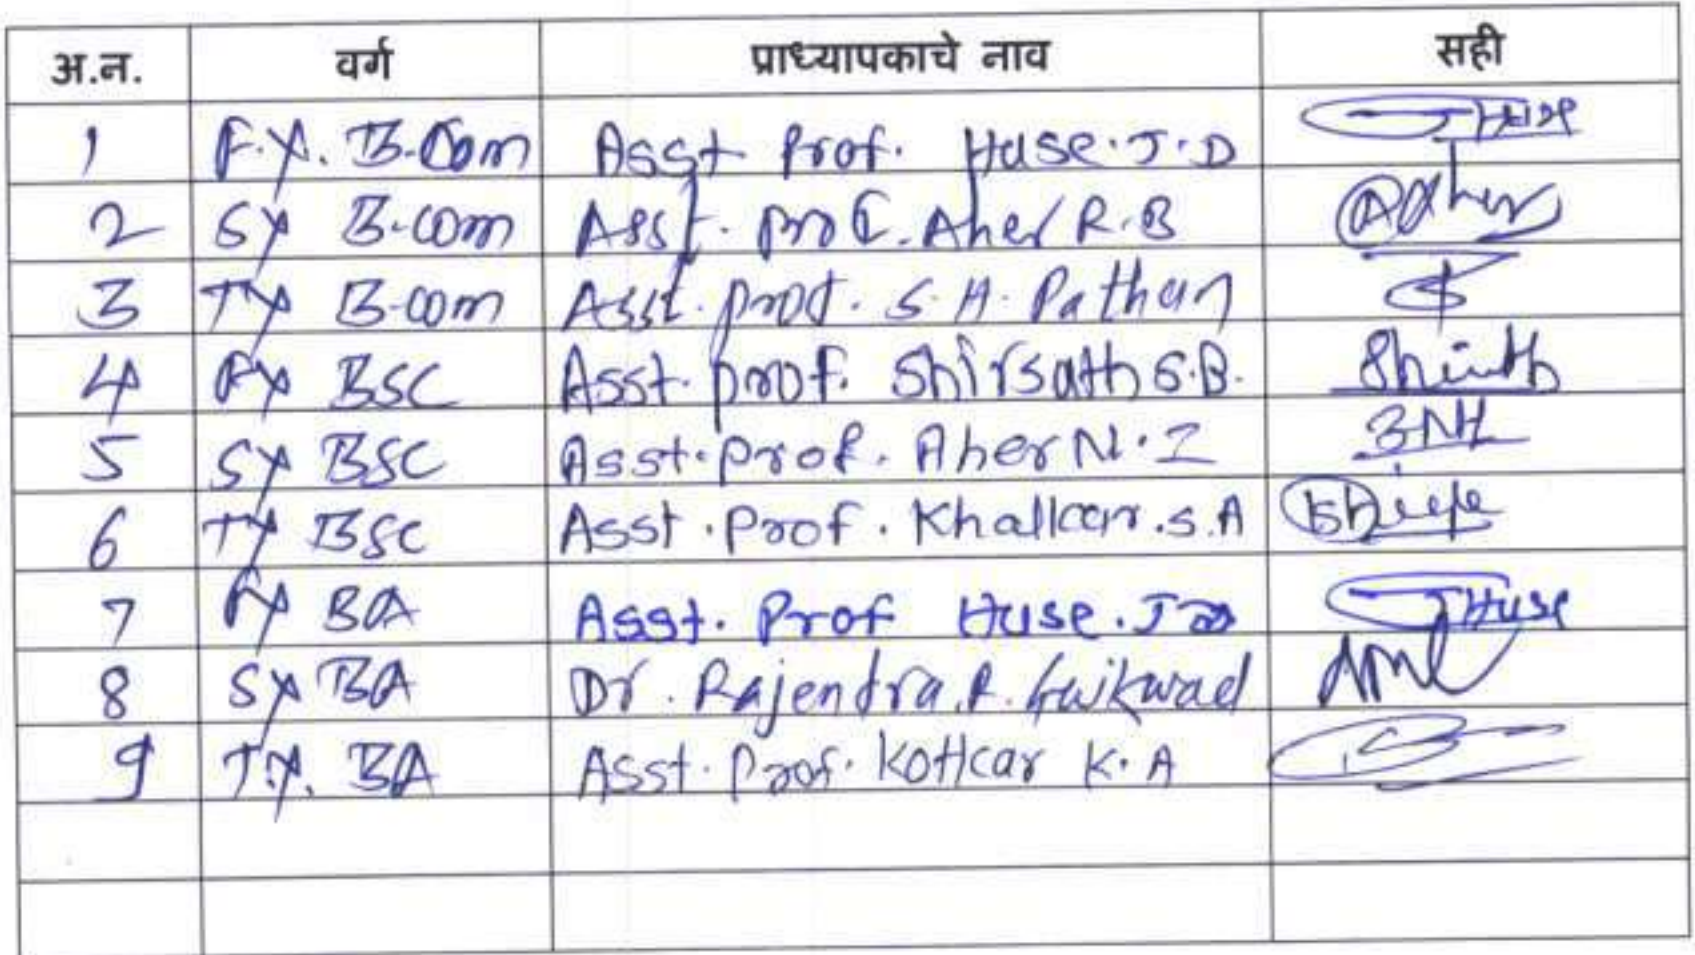 अ.न. वर्ग प्राध्यापकाचे नाव सही
1 F.Y. B.Com Asst Prof. Huse.J.D JHuse
2 SY B.com Asst. prof. Aher R.B
3 TY B.com Asst. prof. S.H. Pathan
4 FY BSC Asst. prof. Shirsath S.B.
5 SY BSC Asst. prof. Aher N.I
6 TY BSC Asst. Prof. Khalkar.S.A
7 FY BA Asst. Prof Huse.J JHuse
8 SY BA Dr. Rajendra.R. Gaikwad
9 T.Y. BA Asst. Prof. Kotkar K.A